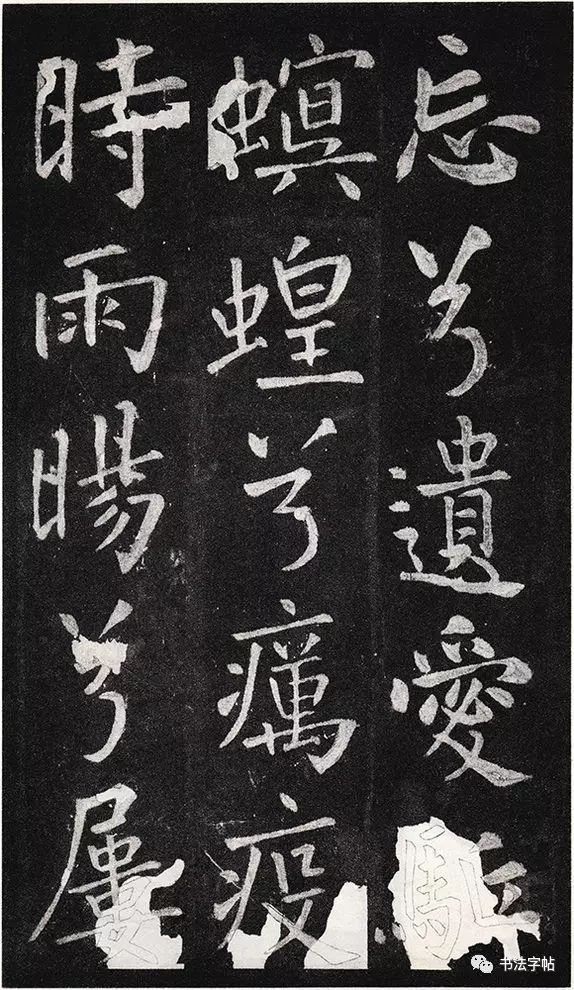 忘兮遺愛駈
螟蝗兮癘疫
時雨暘兮屢
书法字帖